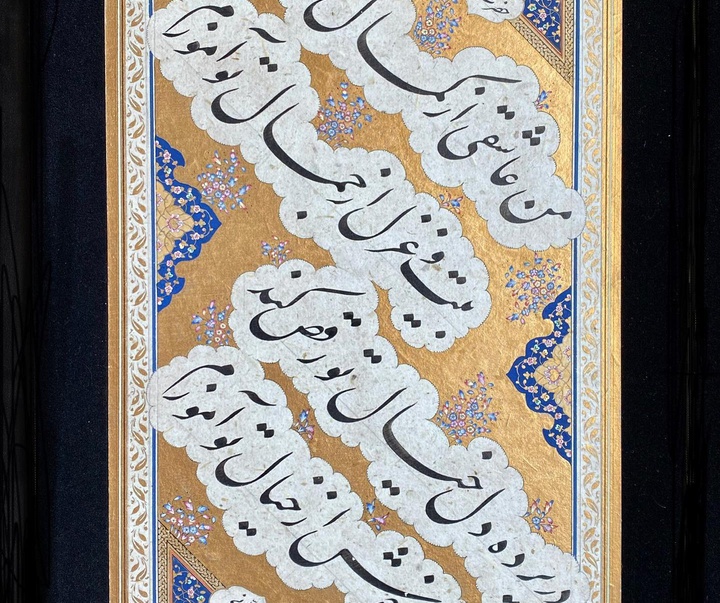 من عاشقی از کمال
بیت و غزل از جمال تو آموزم
در پرده دل خیال تو رقص کند
از خیال تو آموزم